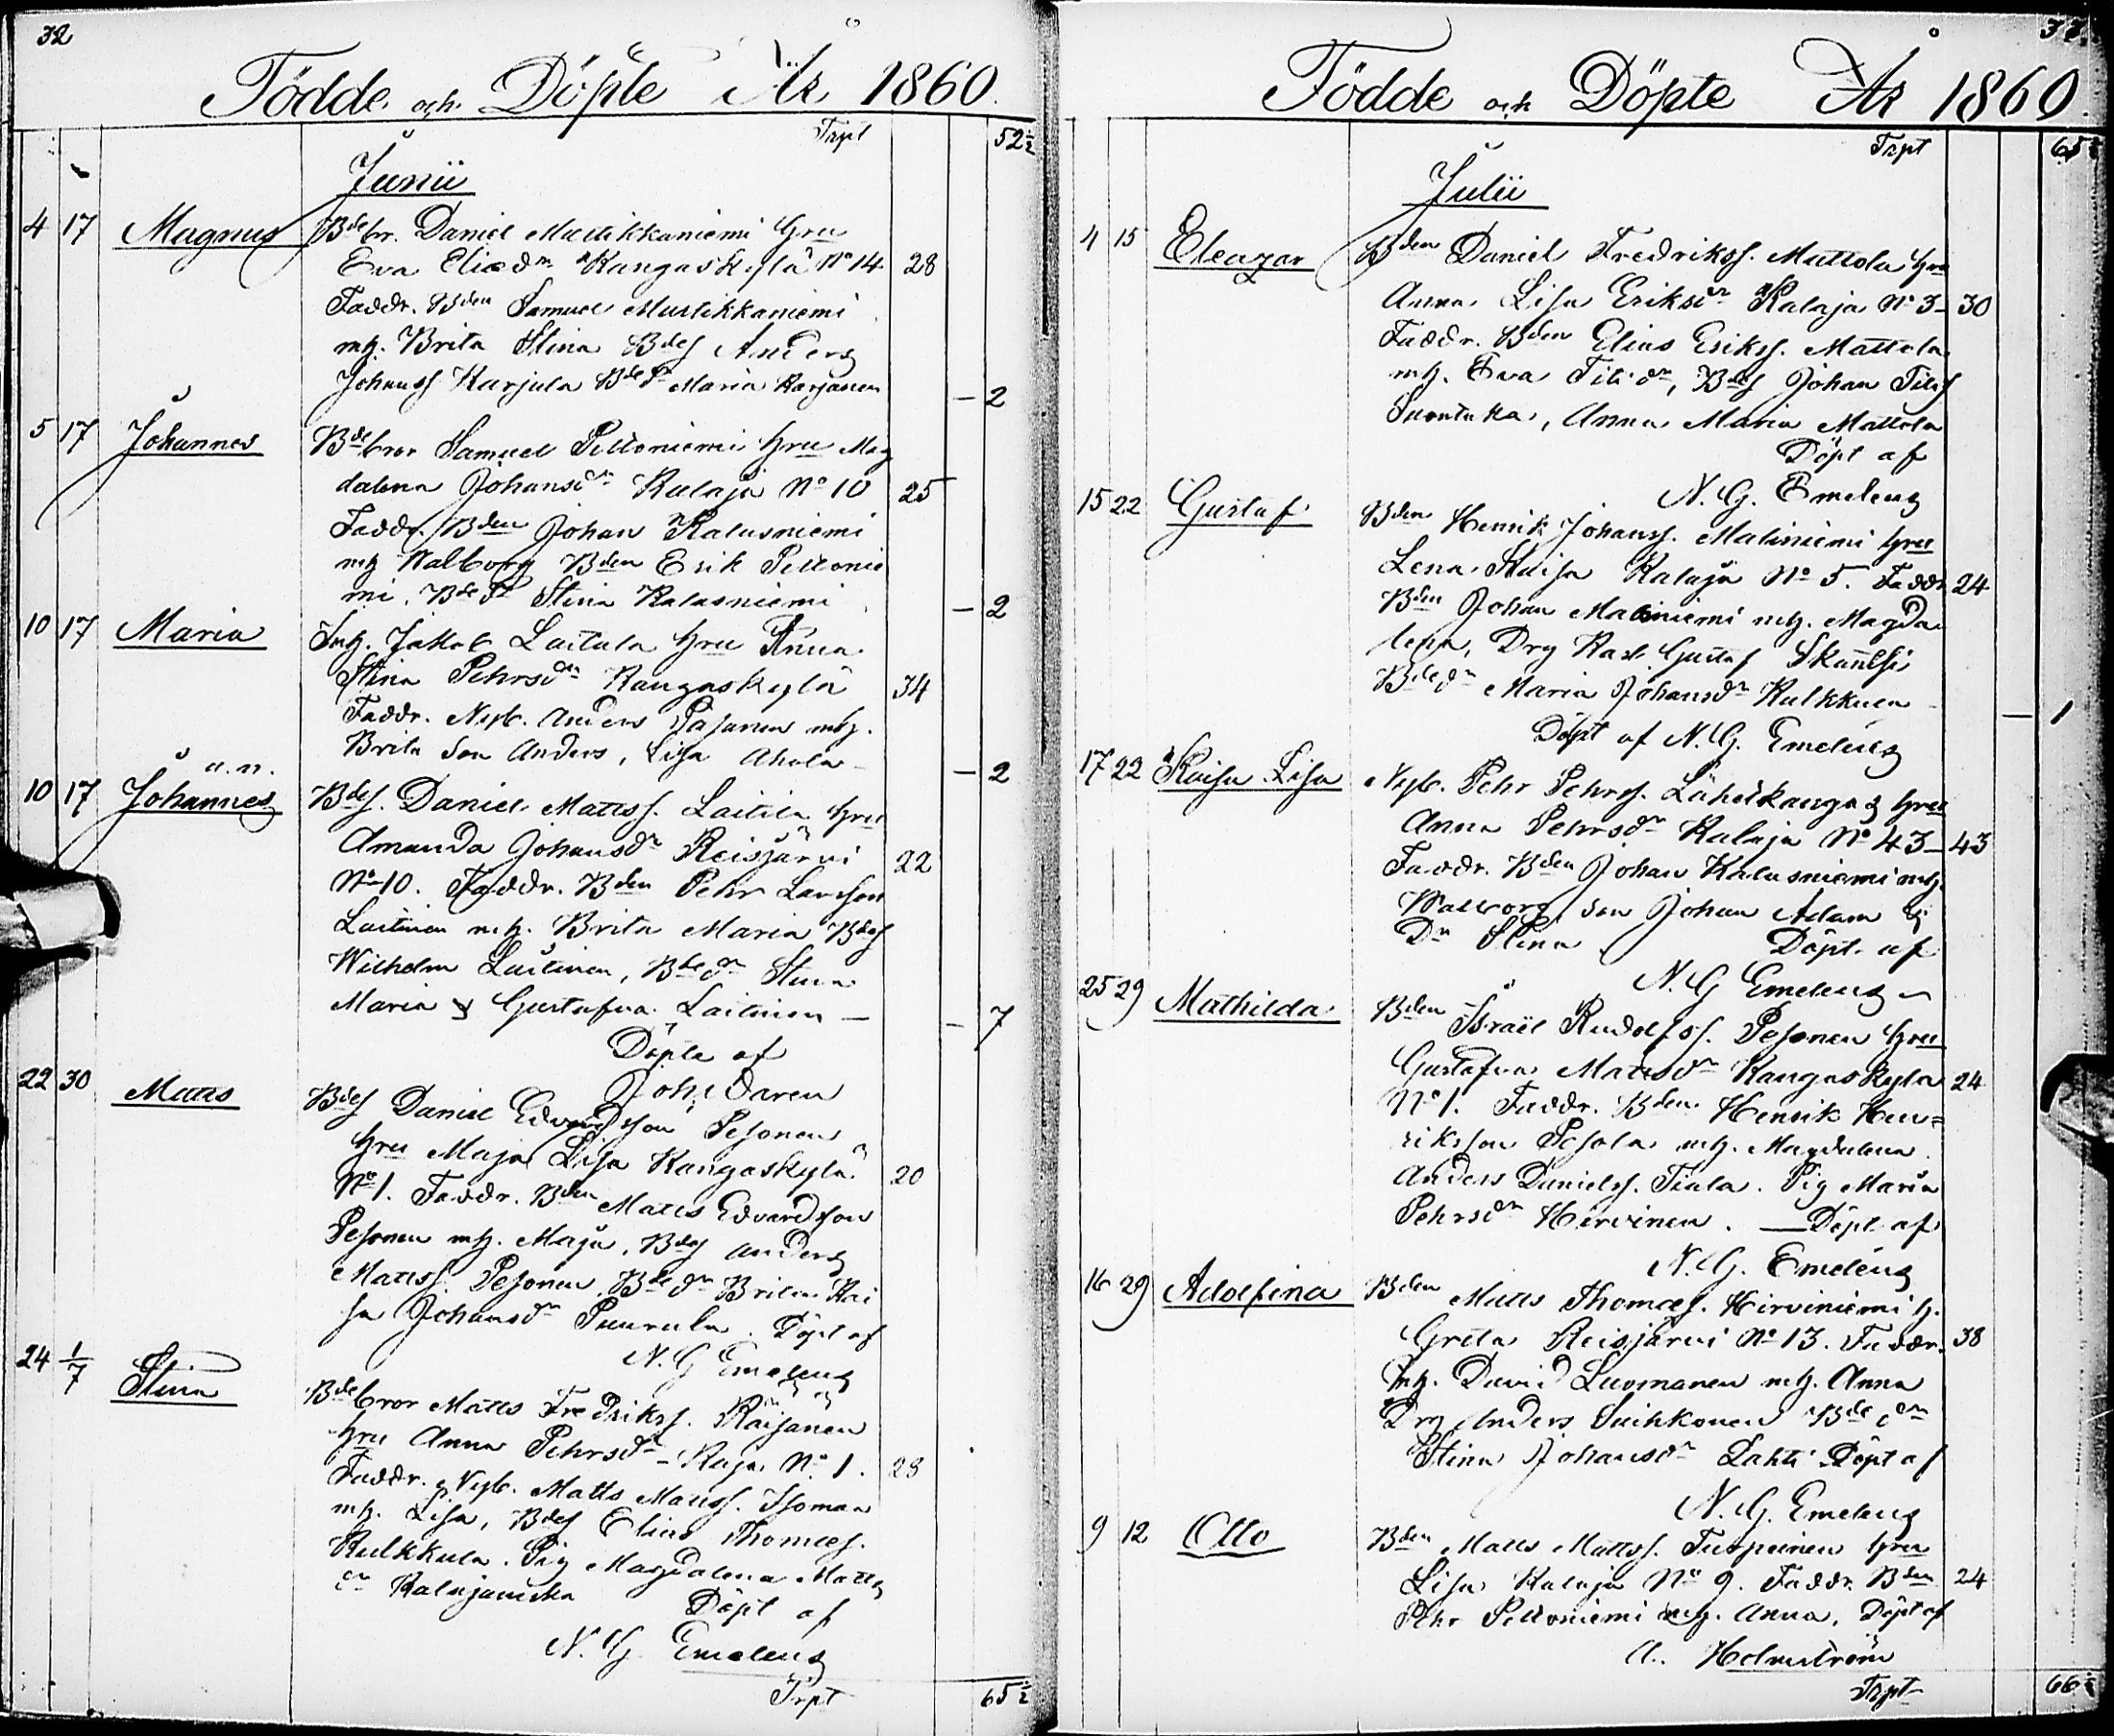 32
Födde och Döpte År 1860.
Trpt 52½
Junii
4 17 Magnus Bdebr. Daniel Mustikkaniemi Hru
Eva Eliædr Kangaskylä No 14 28
Faddr. Bden Samuel Mustikkaniemi
mh. Brita Stina Bdes Anders
Johanss Karjula Bdedr Maria Karjanen — 2
5 17 Johannes Bdebror Samuel Peltoniemi Hru Mag
dalena Johansdr Kalaja No 10 25
Faddr. Bden Johan Kalusniemi
mh Walborg Bden Erik Peltonie
mi, Bdedr Stina Kalusniemi — 2
10 17 Maria Inh. Jakob Laitala Hru Anna
Stina Pehrsdr Kangaskylä 34
Faddr. Nyb. Anders Pasanen mh.
Brita Son Anders, Lisa Ahola — 2
u.ä.
10 17 Johannes Bdes. Daniel Matts. Laitila Hru
Amanda Johansdr Reisjärvi 22
No 10. Faddr. Bden Pehr Larsson
Laitinen mh. Brita Maria Bdes
Wilhelm Laitinen, Bdedr Stina
Maria & Gustafva Laitinen — 7
Döpte af
Joh. Daren
22 30 Matts Bdes Daniel Edvardsson Pesonen
Hru Maja Lisa Kangaskylä 20
No 1. Faddr. Bden Matts Edvardson
Pesonen mh. Maja, Bdes Anders
Mattss. Pesonen, Bdedr Brita Kai
sa Johansdr Puurula. Döpt af
N. G Emeleus
24 1/7 Stina Bdebror Matts Fredrikss. Räisänen
Hru Anna Pehrsdr Raja No 1. 28
Faddr. Nyb. Matts Mattss. Isomaa
mh. Lisa, Bdes Elias Thomæs.
Kulkkula. Pig Magdalena Matts
dr Kalajaniska Döpt af
N. G Emeleus
Trpt 65½
Födde och Döpte År 1860.
Trpt 65½
Julii
4 15 Eleazar Bden Daniel Fredrikss. Mattola Hru
Anna Lisa Eriksdr Kalaja No 3 — 30
Faddr. Bden Elias Erikss. Mattola
mh. Eva Titidr, Bdes Johan Titis
Anna Maria Mattola
Döpt af
N. G. Emeleus
15 22 Gustaf Bden Henrik Johanss. Maliniemi Hru
Lena Kaisa Kalaja No 5. Faddr 24
Bden Johan Maliniemi mh. Magda
lena, Drg Karl Gustaf Skantsi
Bdedr Maria Johansdr Kulkkuen — 1
Döpt af N. G. Emeleus
17 22 Kaisa Lisa Nyb. Pehr Pehrss. Lähetkangas Hru
Anna Pehrsdr Kalaja No 43 — 43
Faddr. Bden Johan Kalusniemi mh.
Walborg, Son Johan Adam &
Dr Stina Döpt af
N. G Emeleus
25 29 Mathilda Bden Israël Rudolfss. Pesonen Hru
Gustafva Mattsdr Kangaskylä 24
No 1. Faddr. Bden Henrik Hen=
riksson Pesola mh. Magdalena
Anders Danielss. Tiala. Pig Maria
Pehrsdr Hirvinen. — Döpt af
N. G. Emeleus
16 29 Adolfina Bden Matts Thomæs. Hirviniemi H.
Greta Reisjärvi No 13. Faddr. 38
Inh. David Luomanen mh. Anna
Drg Anders Suihkonen Bdedr
Stina Johansdr Lahti Döpt af
N. G. Emeleus
9 12 Otto Bden Matts Mattss. Turpeinen Hru
Lisa Kalaja No 9. Faddr. Bden 24
Pehr Peltoniemi mh. Anna, Döpt af
A. Holmström
Trpt 66½